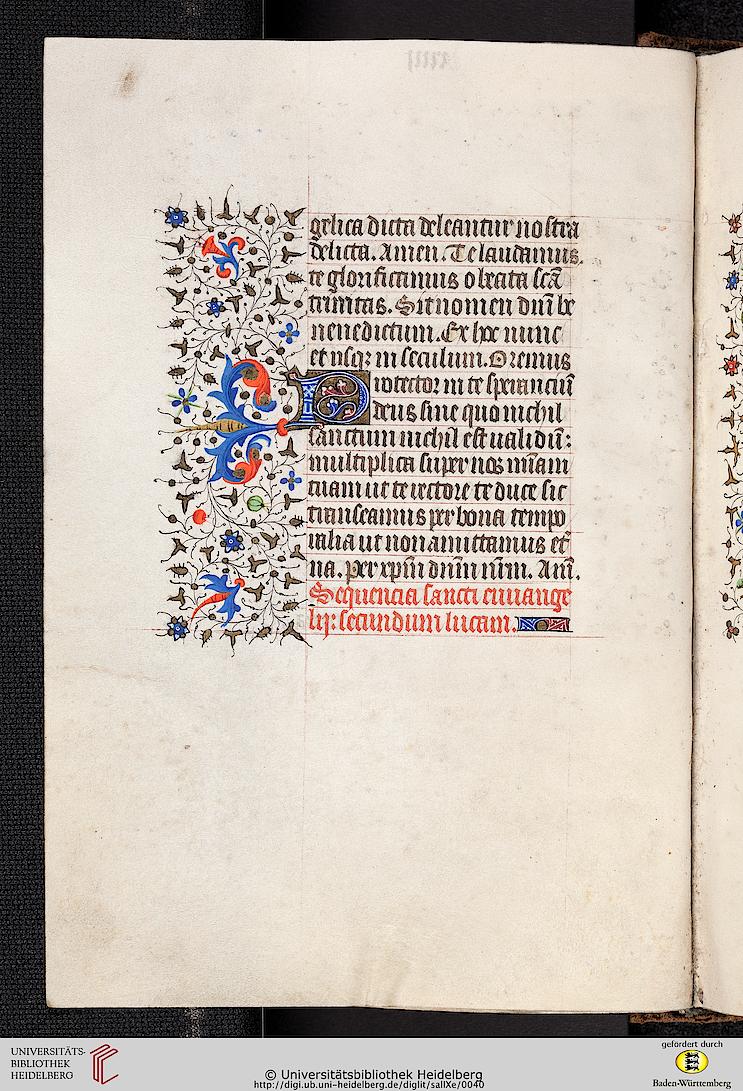 gelica dicta deleantur nostra
delicta. Amen. Te laudamus.
te glorificamus o beata scā
trinitas. Sit nomen dnī be
nenedictum. Ex hoc nunc
et usqꝫ in seculum. Oremus
Protector in te speranciū
deus sine quo nichil
sanctum nichil est ualidū:
multiplica super nos mīam
tuam ut te rectore te duce sic
transeamus per bona tempo
ralia ut non amittamus et̄
na. Per xpm̄ dnm̄ nrm̄. Am̄.
Sequencia sancti euuange
lij: secundum lucam.
UNIVERSITÄTS-
BIBLIOTHEK
HEIDELBERG
© Universitätsbibliothek Heidelberg
http://digi.ub.uni-heidelberg.de/diglit/salIXe/0040
gefördert durch
Baden-Württemberg